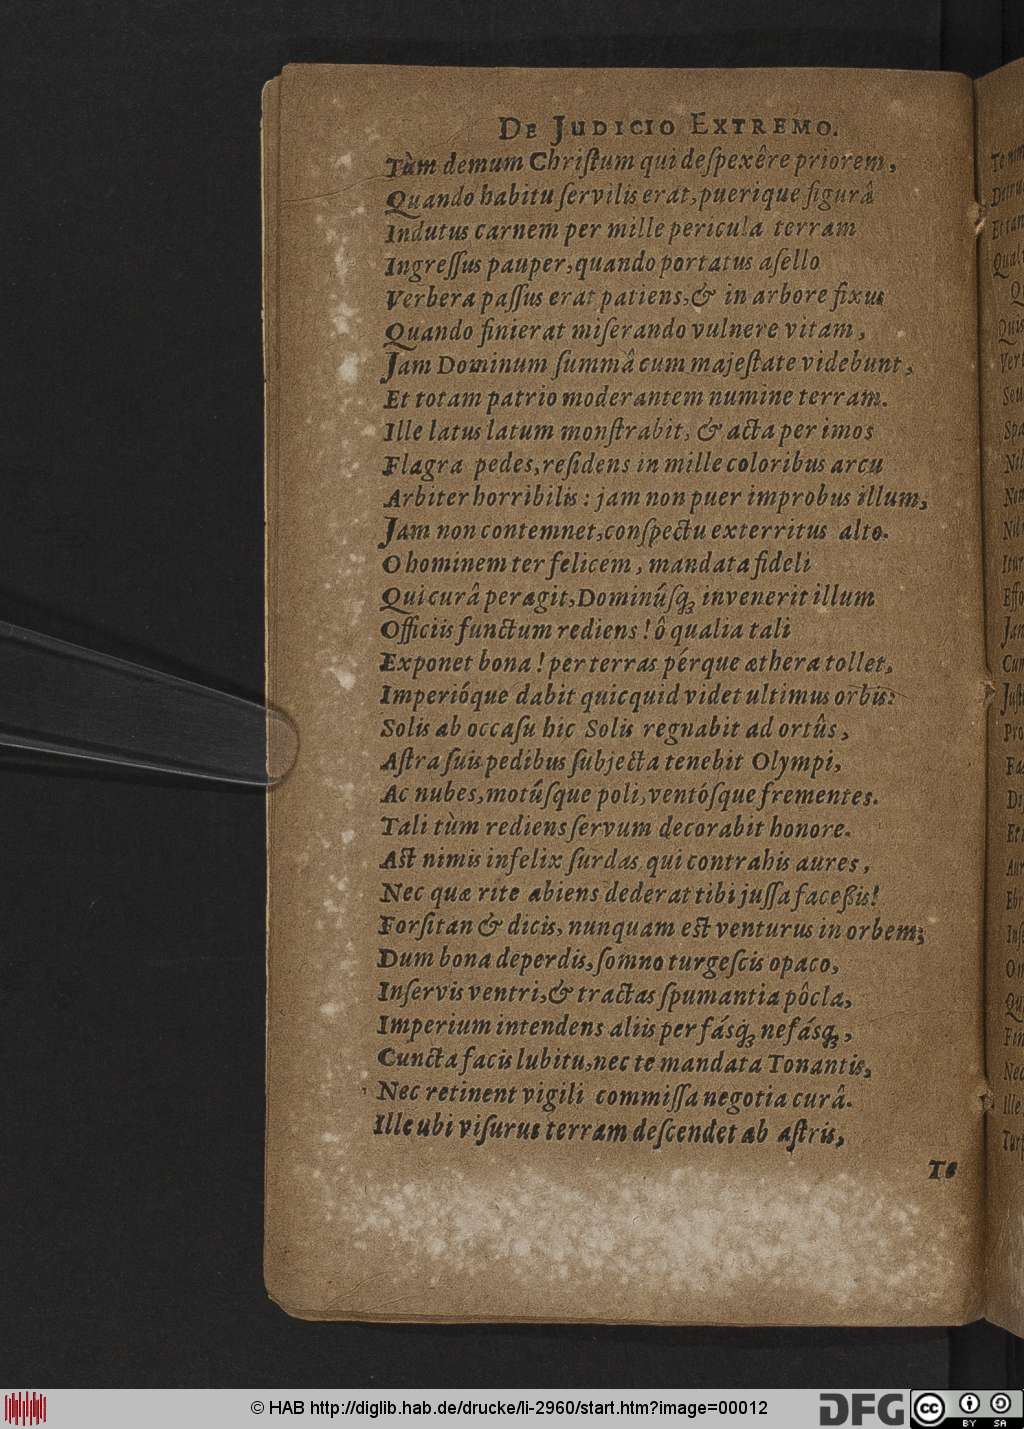 De Judicio Extremo.
Tùm demum Chriſtum qui deſpexêre priorem,
Quando habitu ſervilis erat, puerique figurâ
Indutus carnem per mille pericula terram
Ingreſſus pauper, quando portatus aſello
Verbera paſſus erat patiens, & in arbore fixus
Quando finierat miſerando vulnere vitam,
Jam Dominum ſummâ cum majeſtate videbunt,
Et totam patrio moderantem numine terram.
Ille latus latum monſtrabit, & acta per imos
Flagra pedes, reſidens in mille coloribus arcu
Arbiter horribilis: jam non puer improbus illum,
Jam non contemnet, conſpectu exterritus alto.
O hominem ter felicem, mandata fideli
Qui curâ peragit, Dominúſq; invenerit illum
Officiis functum rediens! ô qualia tali
Exponet bona! per terras pérque æthera tollet,
Imperióque dabit quicquid videt ultimus orbis:
Solis ab occaſu hic Solis regnabit ad ortûs,
Aſtra ſuis pedibus ſubjecta tenebit Olympi,
Ac nubes, motúſque poli, ventóſque frementes.
Tali tùm rediens ſervum decorabit honore.
Aſt nimis infelix ſurdas qui contrahis aures,
Nec quæ rite abiens dederat tibi juſſa faceßis!
Forſitan & dicis, nunquam eſt venturus in orbem;
Dum bona deperdis, ſomno turgeſcis opaco,
Inſervis ventri, & tractas ſpumantia pôcla,
Imperium intendens aliis per fásq; nefásq;,
Cuncta facis lubitu, nec te mandata Tonantis,
Nec retinent vigili commiſſa negotia curâ.
Ille ubi viſurus terram deſcendet ab aſtris,
Te
© HAB http://diglib.hab.de/drucke/li-2960/start.htm?image=00012
DFG
cc
BY SA